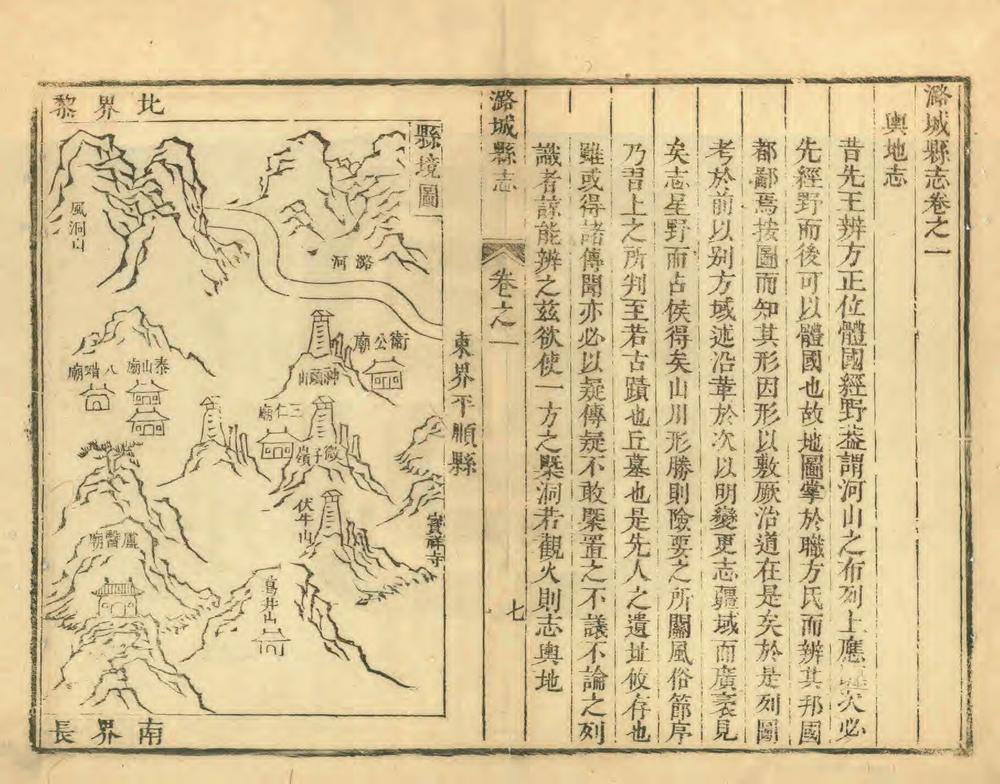 潞城縣志卷之一
輿地志
昔先王辨方正位體國經野葢謂河山之布列上應躔次必
先經野而後可以體國也故地圖掌於職方氏而辨其邦國
都鄙焉按圖而知其形因形以敷厥治道在是矣於是列圖
考於前以别方域述沿革於次以明變更志疆域而廣袤見
矣志星野而占侯得矣山川形勝則險要之所關風俗節序
乃習上之所判至若古蹟也丘墓也是先人之遺址攸存也
雖或得諸傳聞亦必以疑傳疑不敢槩置之不議不論之列
識者諒能辨之兹欲使一方之槩洞若觀火則志輿地
潞城縣志
卷之一
七
縣境圖
北界黎
東界平順縣
南界長
風洞山
潞河
衛公廟
神頭山
泰山廟
八蜡廟
三仁廟
微子嶺
伏牛山
寳祥寺
盧醫廟
葛井山